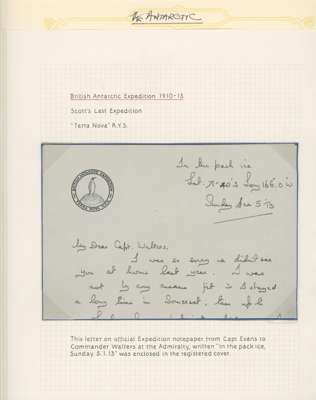 THE ANTARCTIC
British Antarctic Expedition 1910-13
Scott's Last Expedition
"Terra Nova" R.Y.S.
BRITISH ANTARCTIC EXPEDITION
TERRA NOVA R.Y.S.
In the pack ice
Lat. 71.40's Long 166.0'W
Sunday Jan 5/13
My Dear Capt. Walters.
I was so sorry we didn't see
you at home last year. I was
not by any means fit & stayed
a long time in Somerset, then up to
This letter on official Expedition notepaper from Capt Evans to
Commander Walters at the Admiralty, written "in the pack ice,
Sunday 5.1.13" was enclosed in the registered cover.